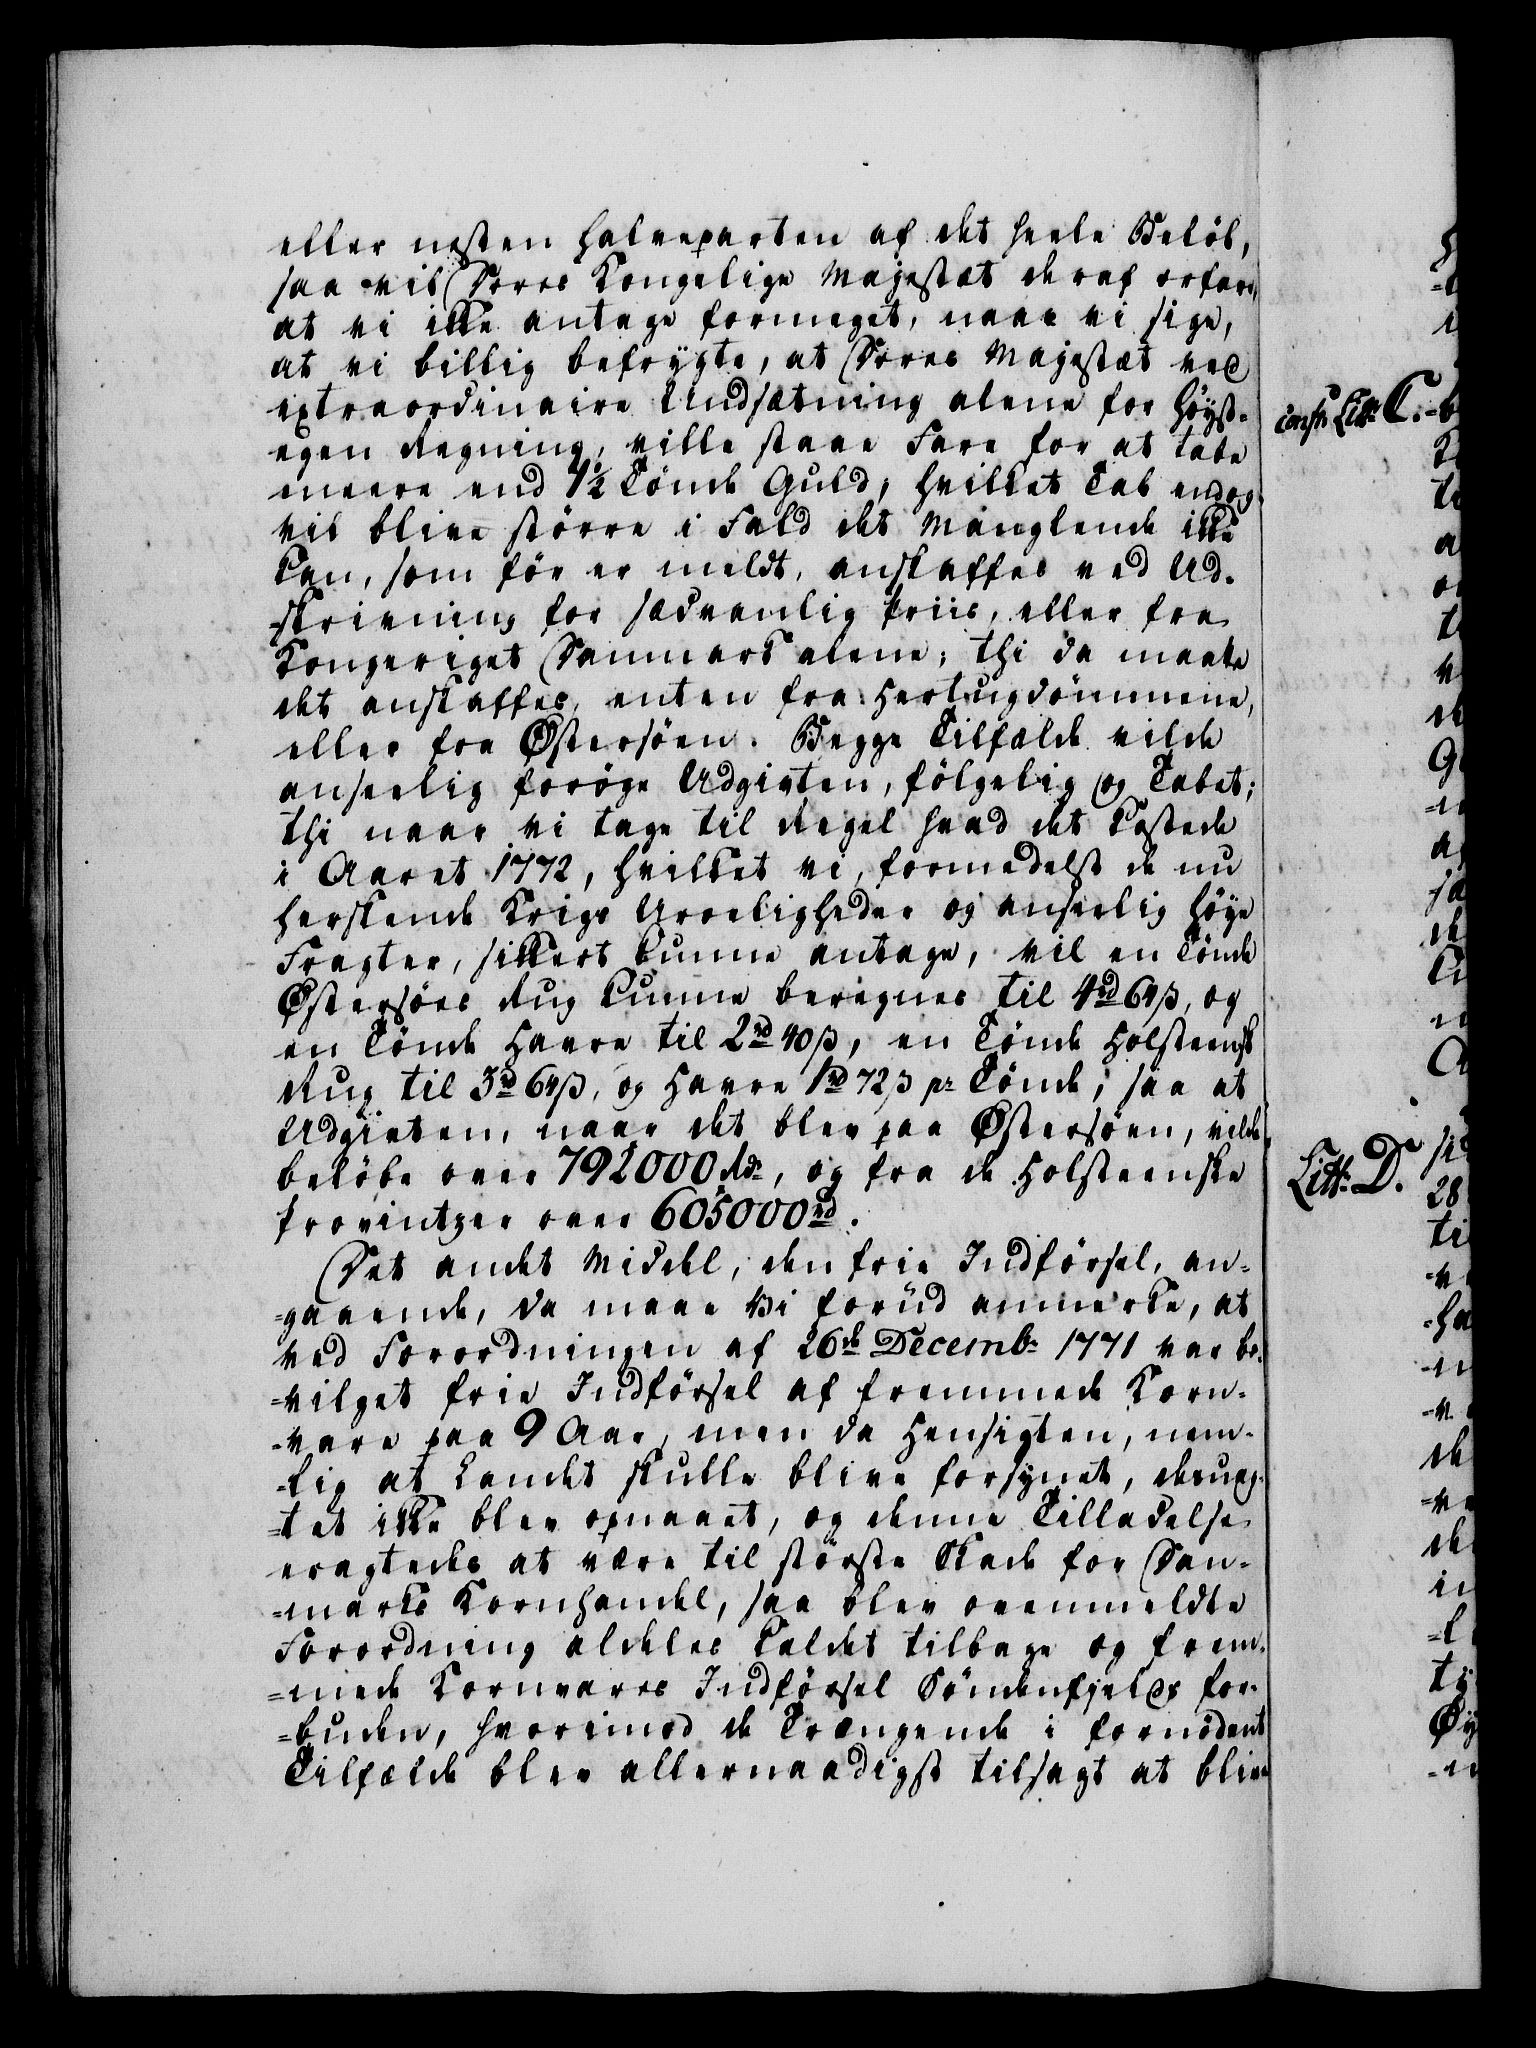 eller nesten halveparten af det heele Beløb,
saa vil Deres Kongelige Majestæt deraf erfare,
at vi ikke antage formeget, naar vi sige,
at vi billig befrygte, at Deres Majestæt ved
extraordinaire Undsætning alene for Høyst-
egen Regning, ville staae Fare for at tabe
meere end 1½ Tønde Guld, hvilket Tab endog
vil blive større i Fald det Manglende ikke
kan, som før er meldt, anskaffes ved Ud-
-skrivning for sædvanlig Priis, eller fra
Kongeriget Danmark alene; thi da maatte
det anskaffes, enten fra Hertugdømmene,
eller fra Østersøen. Begge Tilfælde vilde
anseelig forøge Udgivten, følgelig og Tabet;
thi naar vi tage til Regel hvad det kostede
i Aaret 1772, hvilket vi, formedelst de nu
herskende Krigs Uroeligheder og anseelig høye
Fragter, sikkert kunne antage, vil en Tønde
Østersøes Rug kunne beregnes til 4rd 64β, og
en Tønde Havre til 2rd 40β, en Tønde Holsteensk
Rug til 3rd 64β, og Havre 1rd 72β pr Tønde; saa at
Udgivten, naar det blev paa Østersøen, vilde
beløbe over 792000 Rdr, og fra de Holsteenske
Provintzer over 605000rd.
Det andet Middel, den frie Indførsel, an-
-gaaende, da maae Vi forud anmerke, at
ved Forordningen af 26de Decembr 1771 var be-
-vilget frie Indførsel af fremmede Korn-
-vare paa 9 Aar, men da Hensigten, nem-
-lig at Landet skulle blive forsynet, desuag-
-tet ikke blev opnaaet, og denne Tilladelse
eragtedes at være til største Skade for Dan-
-marks Kornhandel, saa blev ovenmeldte
Forordning aldeles kaldet tilbage og frem-
-mede Kornvares Indførsel Søndenfjelds for-
-buden, hvorimod de Trængende i fornødent
Tilfælde blev allernaadigst tilsagt at blive
Litt. C.
Litt. D.